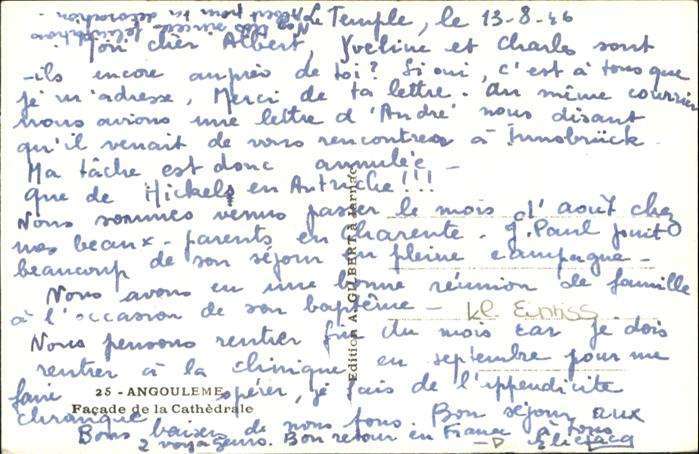 Le Temple, le 13-8-46
Mon cher Albert, Yveline et Charles sont
-ils encore auprès de toi ? Si oui, c'est à tous que
je m'adresse, Merci de ta lettre. Au même courrier
nous avions une lettre d'André nous disant
qu'il venait de vous rencontrer à Innsbrück.
Ma tâche est donc annulée -
que de Mickels en Autriche !!!
Nous sommes venus passer le mois d'août chez
mes beaux-parents en Charente. J. Paul jouit
beaucoup de son séjour en pleine campagne -
Nous avons eu une bonne réunion de famille
à l'occasion de son baptême -
Nous pensons rentrer fin du mois car je dois
rentrer à la clinique en septembre pour me
faire opérer, je fais de l'appendicite
chronique. Bon séjour aux
2 voyageurs. Bon retour en France à tous
Bons baisers de nous tous.
félicitations
Albert pour ta décoration
25 - ANGOULEME
Façade de la Cathèdrale
Edition A. GILBERT à Jarnac